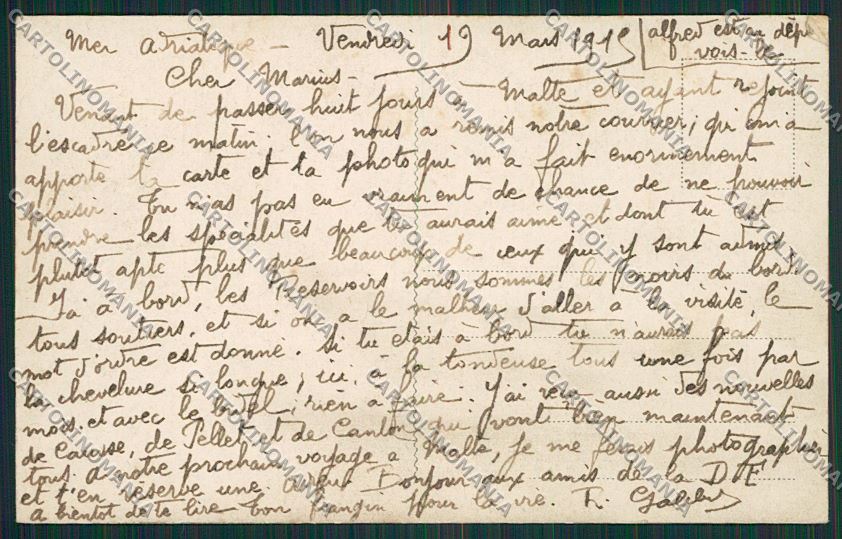 Mer Adriatique - Vendredi 19 Mars 1915
alfred est au dépôt
vois-le
Cher Marius -
Venant de passer huit jours à Malte et ayant rejoint
l'escadre ce matin. l'on nous a remis notre courrier, qui m'a
apporté la carte et la photo qui m'a fait enormement
plaisir. Tu n'as pas eu vraiment de chance de ne pouvoir
prendre les spécialités que tu aurais aimé et dont tu est
plutot apte plus que beaucoup de ceux qui y sont admis
a bord, les Reservoirs nous sommes les noirs du bord
tous soutiers, et si on a le malheur d'aller a la visite, le
mot d'ordre est donné. Si tu etais à bord tu n'aurais pas
la chevelure si longue, ici, à la tondeuse tous une fois par
mois et avec le bidel, rien a faire. J'ai reçu aussi des nouvelles
de Caisse, de Pellet et de Canton qui vont bien maintenant
tous. A notre prochain voyage a Malte, je me ferais photographier
et t'en reserve une. Bonjour aux amis de la D E
A bientot de te lire ton frangin pour la vie. R.
CARTOLINOMANIA